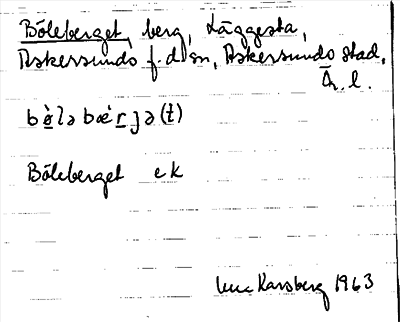 Böleberget, berg, Läggesta,
Askersunds f.d. sn, Askersunds stad,
Ör. l.
bø̀lə bæ̀rjə(t)
Böleberget ek
Karsberg 1963